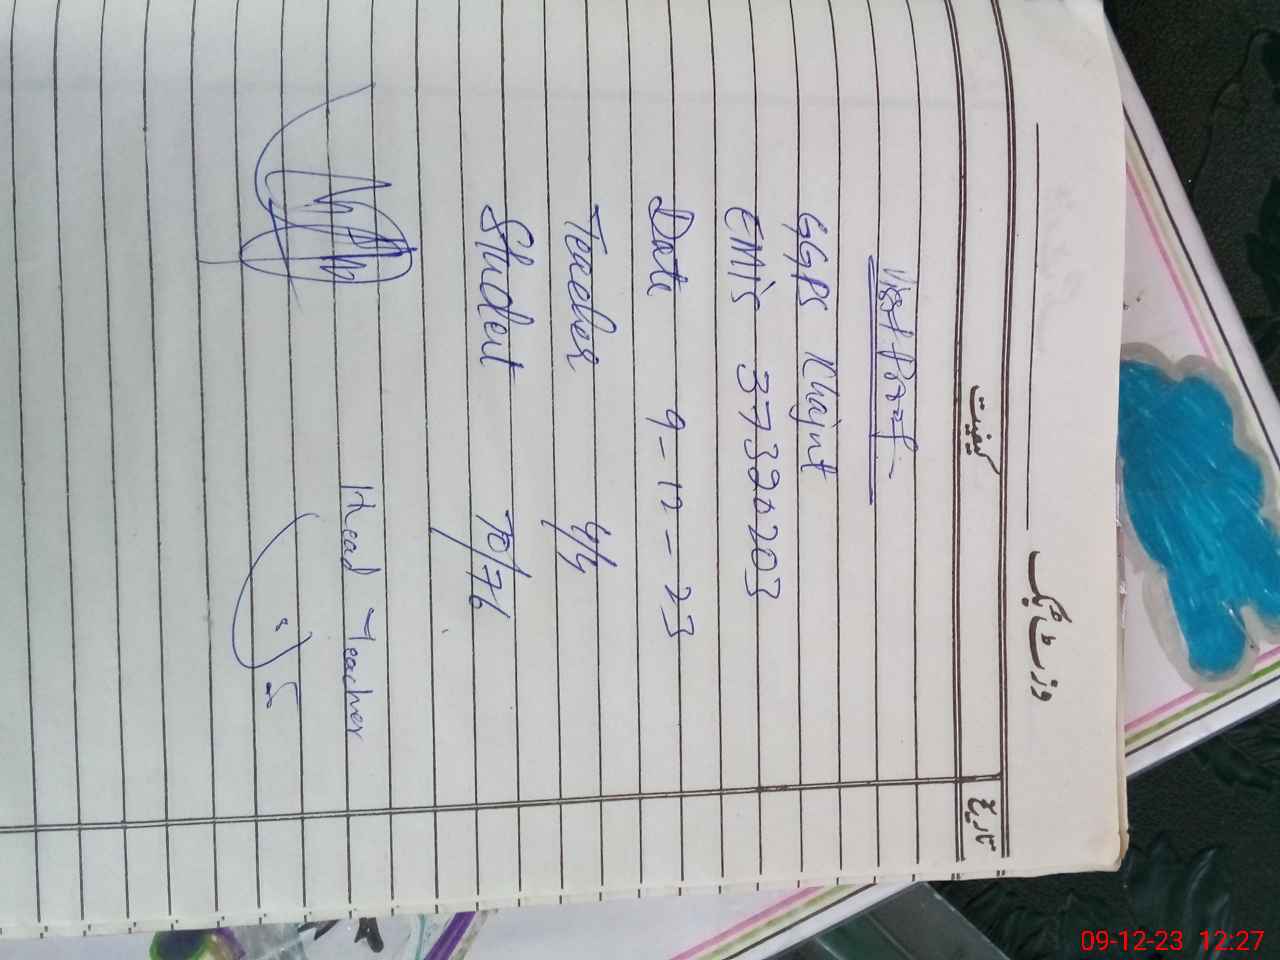 وزٹ بک
کیفیت
تاریخ
Visit Proof
GGPS Khajut
EMIS 37320203
Date 9-12-23
Teacher 4/4
Student 70/76
Head Teacher
09-12-23 12:27